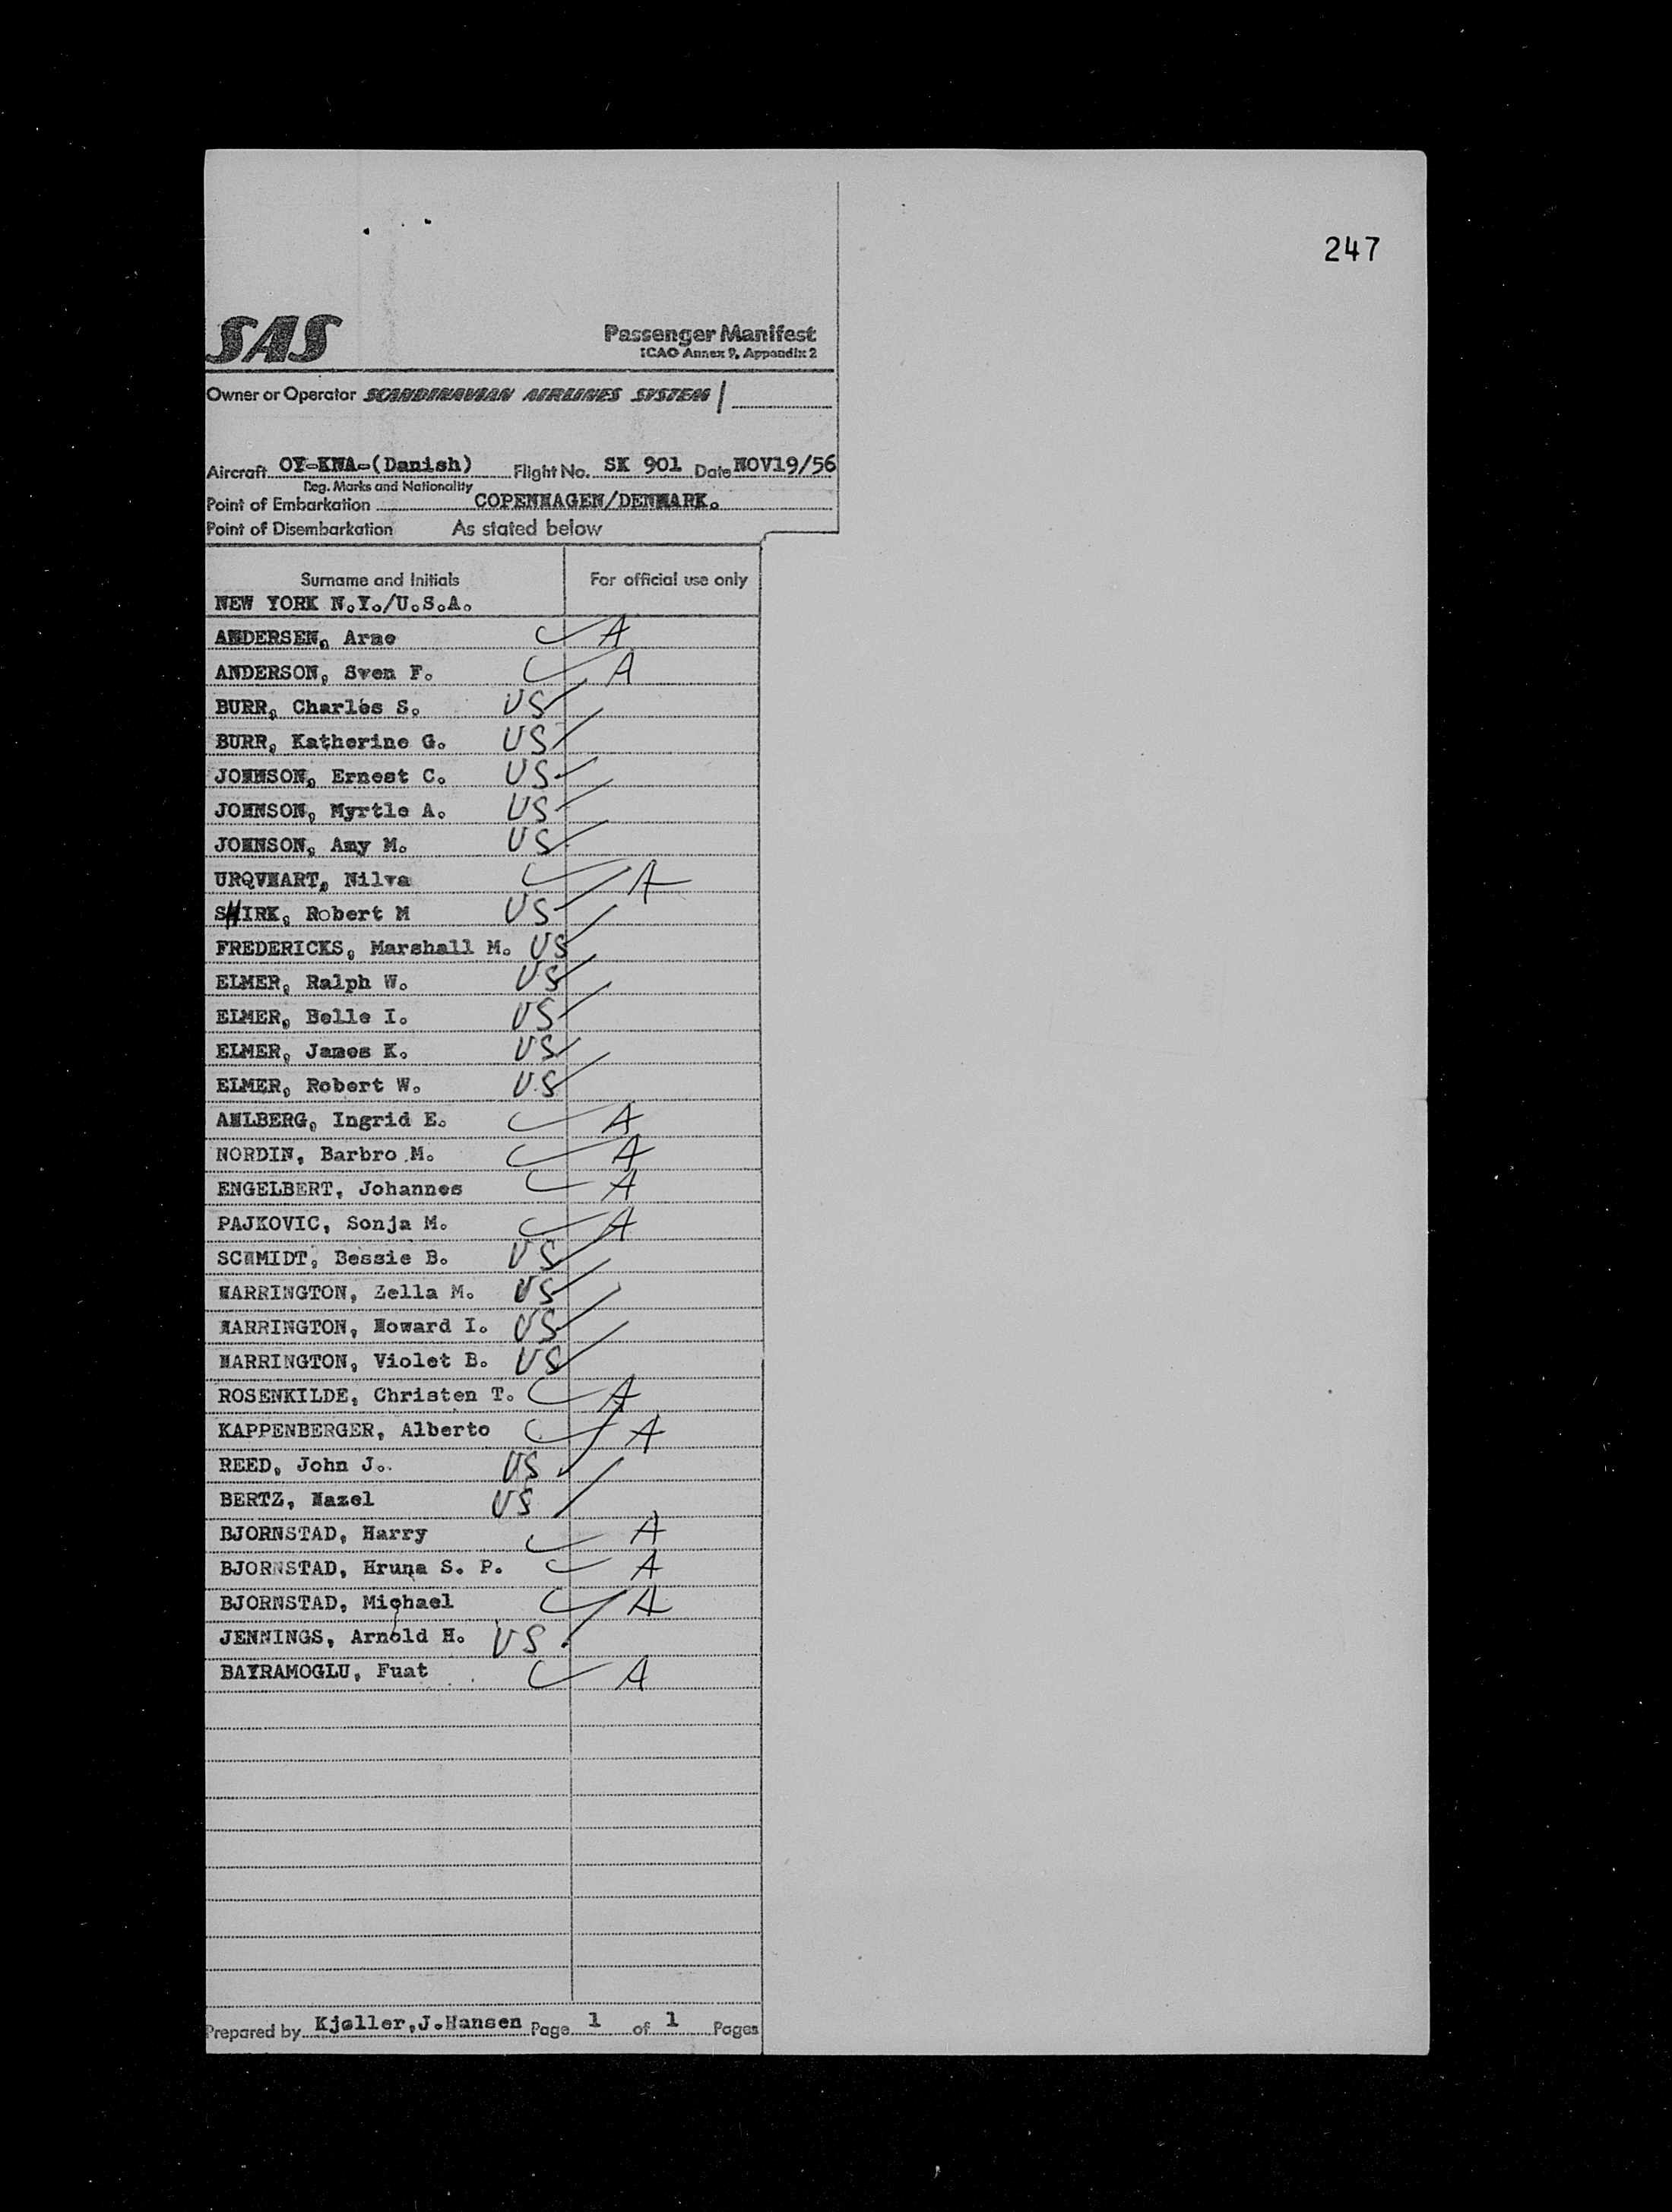 247
SAS
Passenger Manifest
ICAO Annex 9, Appendix 2
Owner or Operator SCANDINAVIAN AIRLINES SYSTEM
Aircraft OY-KNA-(Danish) Flight No. SK 901 Date NOV19/56
Reg. Marks and Nationality
Point of Embarkation COPENHAGEN/DENMARK.
Point of Disembarkation As stated below
Surname and Initials For official use only
NEW YORK N.Y./U.S.A.
ANDERSEN, Arne A
ANDERSON, Sven F. A
BURR, Charles S. US
BURR, Katherine G. US
JOHNSON, Ernest C. US
JOHNSON, Myrtle A. US
JOHNSON, Amy M. US
URQVHART, Nilva A
SHIRK, Robert M US
FREDERICKS, Marshall M. US
ELMER, Ralph W. US
ELMER, Belle I. US
ELMER, James K. US
ELMER, Robert W. US
AHLBERG, Ingrid E. A
NORDIN, Barbro M. A
ENGELBERT, Johannes A
PAJKOVIC, Sonja M. A
SCHMIDT, Bessie B. US
HARRINGTON, Zella M. US
HARRINGTON, Howard I. US
HARRINGTON, Violet B. US
ROSENKILDE, Christen T. A
KAPPENBERGER, Alberto A
REED, John J. US
BERTZ, Hazel US
BJORNSTAD, Harry A
BJORNSTAD, Hruna S. P. A
BJORNSTAD, Michael A
JENNINGS, Arnold H. US
BAYRAMOGLU, Fuat A
Prepared by Kjøller,J.Hansen Page 1 of 1 Pages